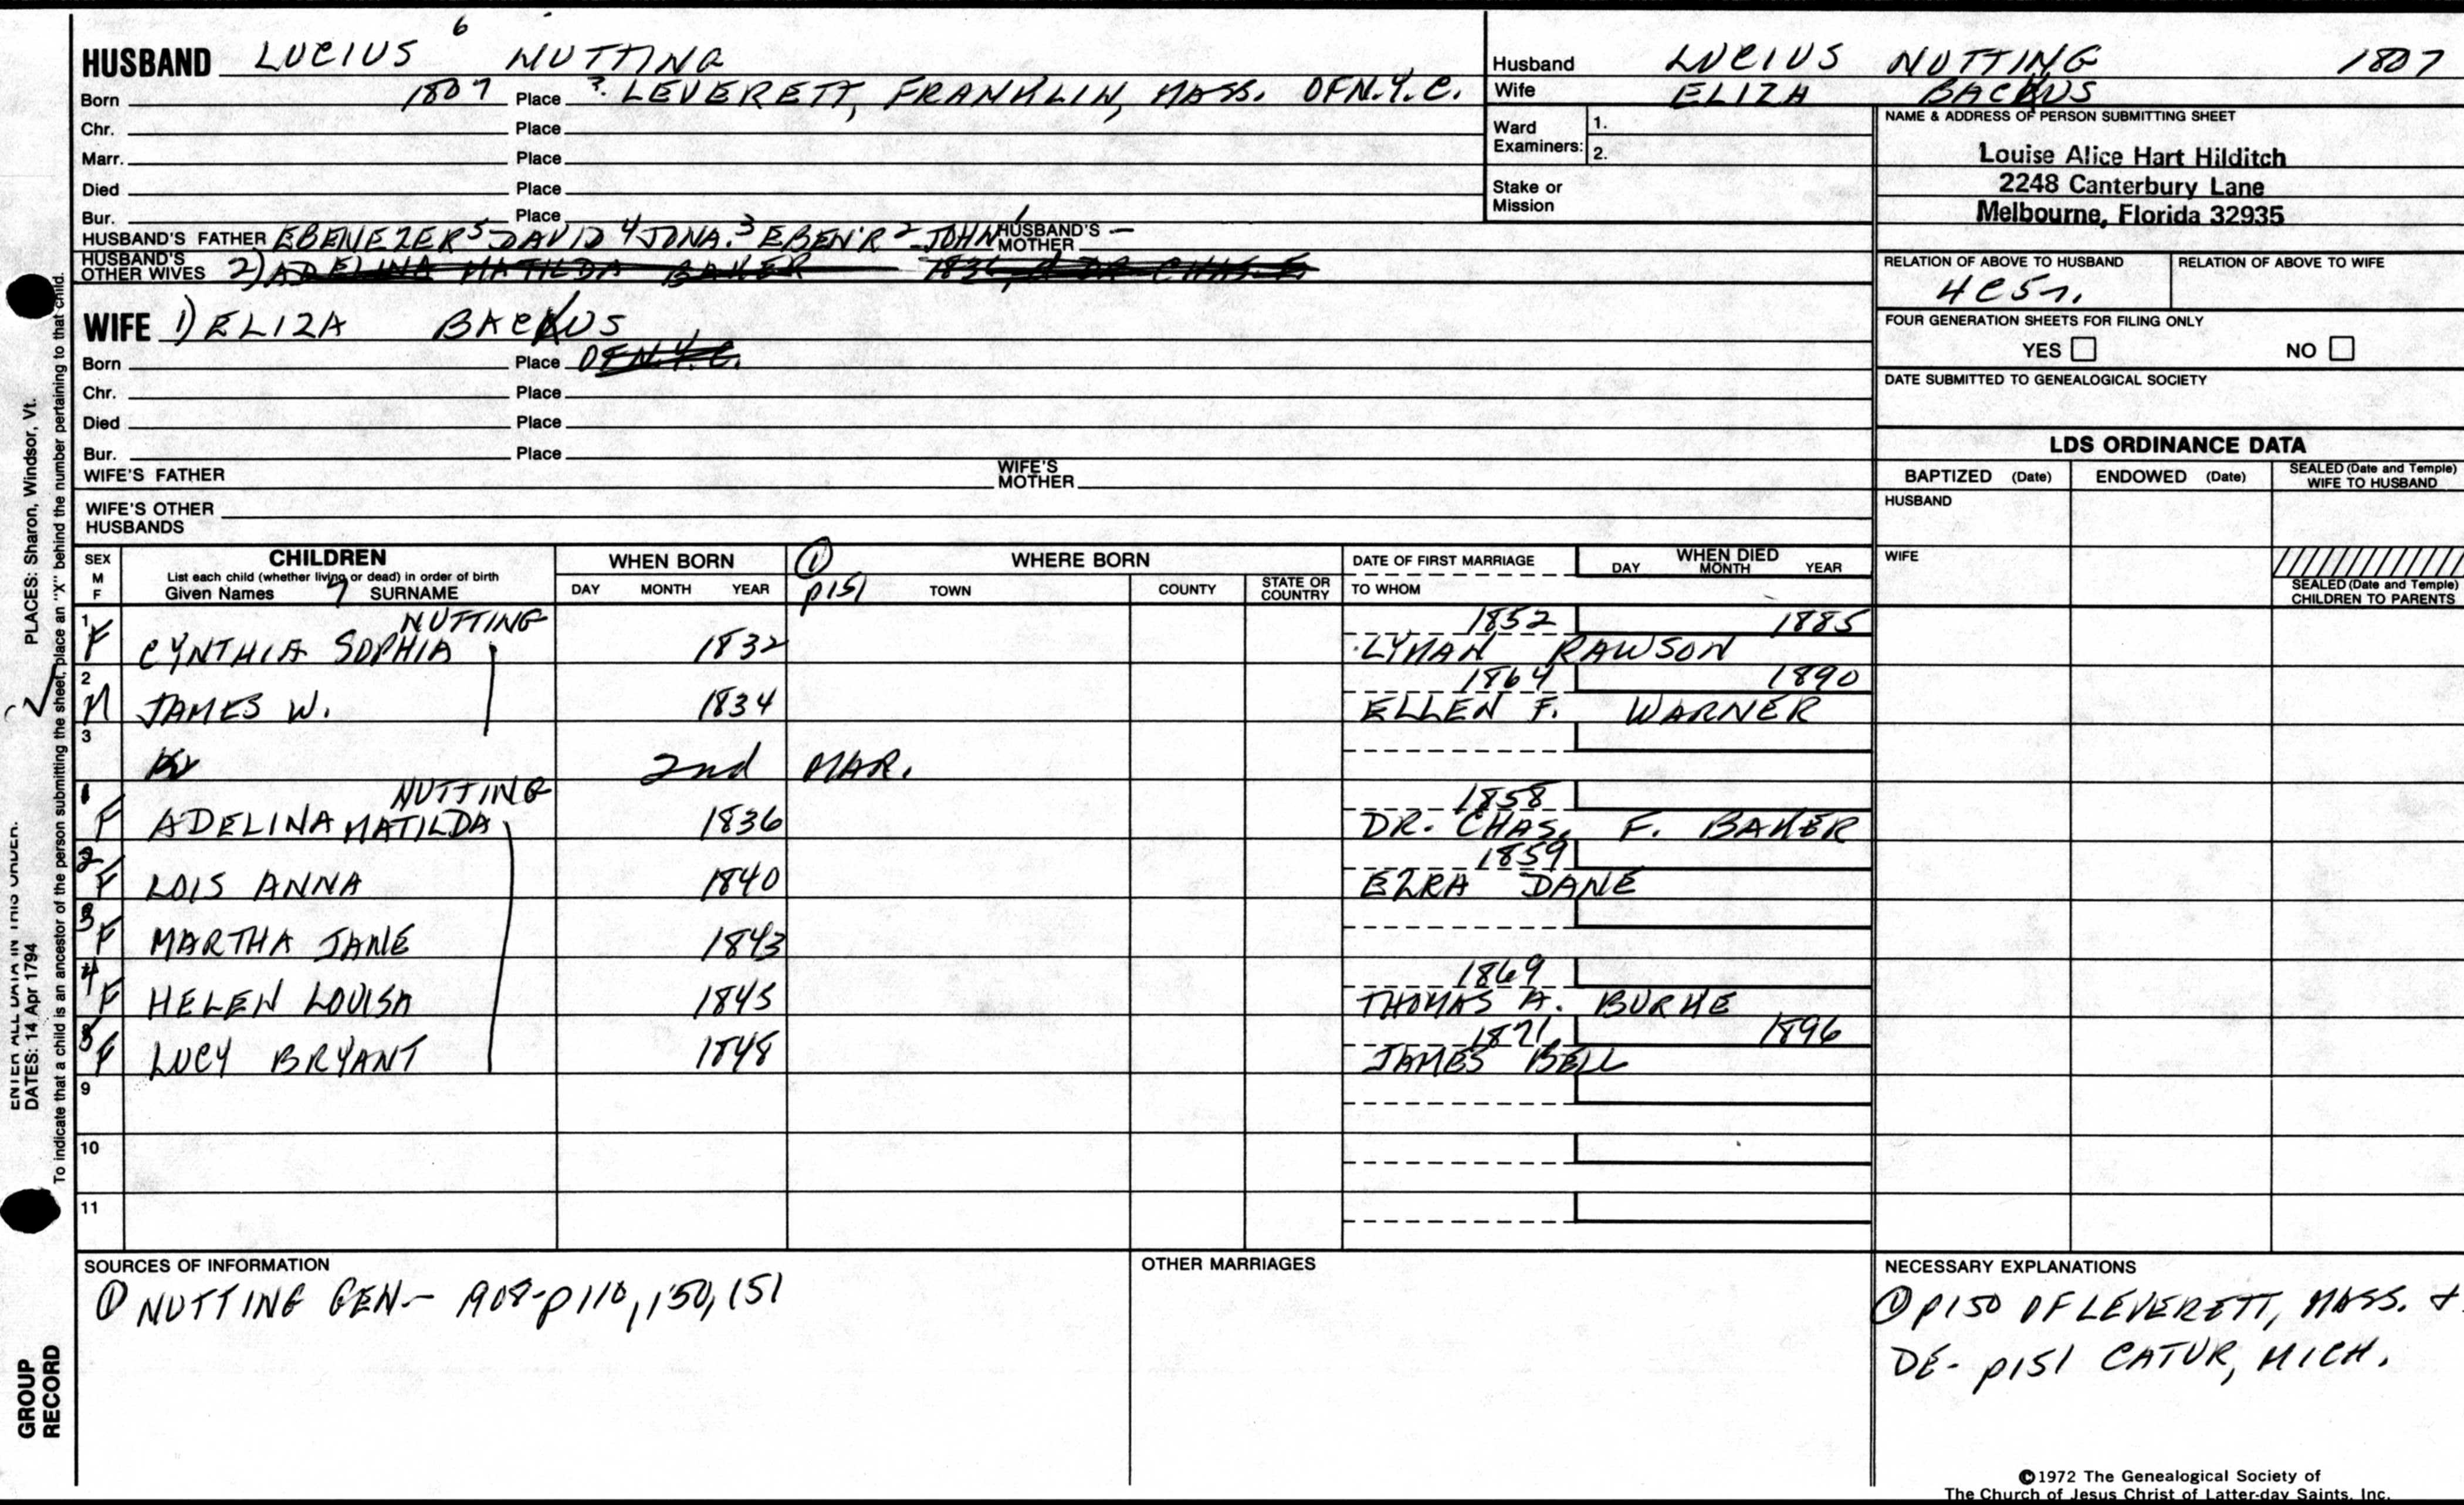 HUSBAND LUCIUS 6 NUTTING
Born 1807 Place ? LEVERETT, FRANKLIN, MASS. OF N.Y.C.
Chr. Place
Marr. Place
Died Place
Bur. Place
HUSBAND'S FATHER EBENEZER 5 DAVID 4 JONA. 3 EBEN'R 2 JOHN 1 HUSBAND'S MOTHER –
HUSBAND'S OTHER WIVES 2) ADELINA MATILDA BAKER 1836
WIFE 1) ELIZA BACKUS
Born Place OF N.Y.C.
Chr. Place
Died Place
Bur. Place
WIFE'S FATHER WIFE'S MOTHER
WIFE'S OTHER HUSBANDS
Husband LUCIUS NUTTING 1807
Wife ELIZA BACKUS
Ward Examiners: 1.
2.
Stake or Mission
NAME & ADDRESS OF PERSON SUBMITTING SHEET
Louise Alice Hart Hilditch
2248 Canterbury Lane
Melbourne, Florida 32935
RELATION OF ABOVE TO HUSBAND RELATION OF ABOVE TO WIFE
FOUR GENERATION SHEETS FOR FILING ONLY
YES NO
DATE SUBMITTED TO GENEALOGICAL SOCIETY
LDS ORDINANCE DATA
BAPTIZED (Date) ENDOWED (Date) SEALED (Date and Temple) WIFE TO HUSBAND
HUSBAND
WIFE
SEALED (Date and Temple) CHILDREN TO PARENTS
SEX M F
CHILDREN
List each child (whether living or dead) in order of birth
Given Names 7 SURNAME
WHEN BORN
DAY MONTH YEAR
① p151
WHERE BORN
TOWN COUNTY STATE OR COUNTRY
DATE OF FIRST MARRIAGE
TO WHOM
WHEN DIED
DAY MONTH YEAR
NUTTING 1852 1885
1 F CYNTHIA SOPHIA 1832 LYMAN RAWSON
1864 1890
2 M JAMES W. 1834 ELLEN F. WARNER
3 2nd MAR.
NUTTING 1858
1 F ADELINA MATILDA 1836 DR. CHAS. F. BAKER
1859
2 F LOIS ANNA 1840 EZRA DANE
3 F MARTHA JANE 1843
1869
4 F HELEN LOUISA 1845 THOMAS A. BURKE
1871 1896
5 F LUCY BRYANT 1848 JAMES BELL
9
10
11
SOURCES OF INFORMATION
① NUTTING GEN– 1908–p110, 150, 151
OTHER MARRIAGES
NECESSARY EXPLANATIONS
① p150 OF LEVERETT, MASS. &
DE- p151 CATUR, MICH.
©1972 The Genealogical Society of
The Church of Jesus Christ of Latter-day Saints, Inc.
ENTER ALL DATA IN THIS ORDER:
DATES: 14 Apr 1794 PLACES: Sharon, Windsor, Vt.
To indicate that a child is an ancestor of the person submitting the sheet, place an "X" behind the number pertaining to that child.
GROUP
RECORD